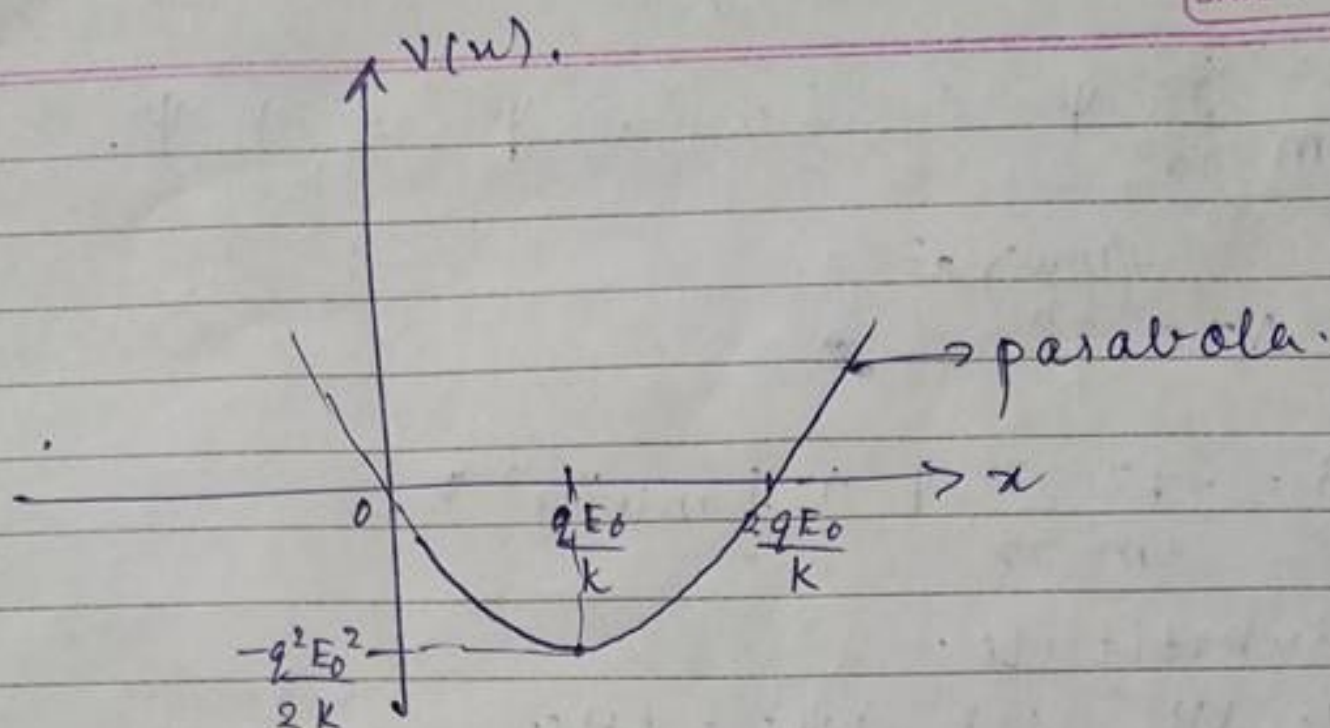 V(x).
→ parabola.
x
0
qE₀/k
2qE₀/k
-q²E₀²/2k